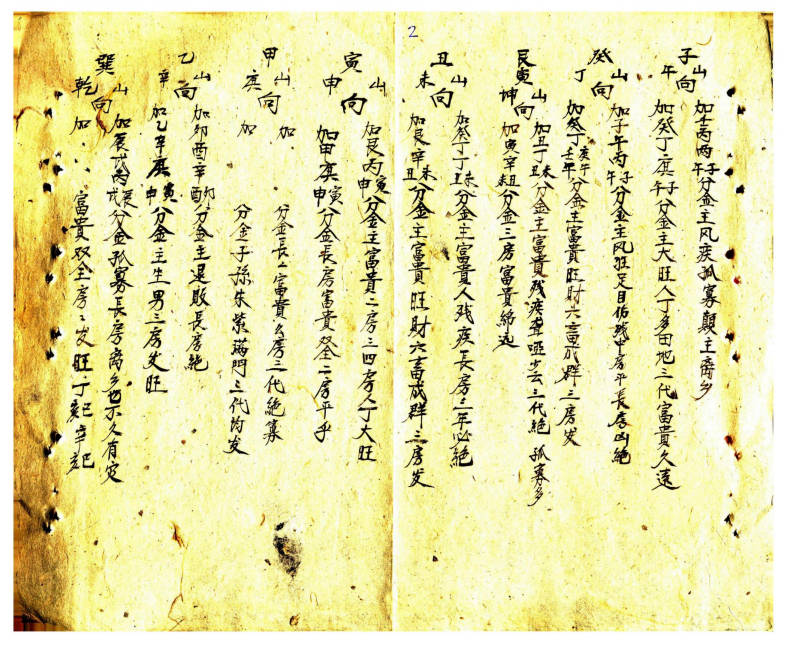 2
子山午向
加壬丙丙午子分金主风疾孤寡顛主离乡
加癸丁庚午子分金主大旺人丁多田地三代富貴久遠
癸山丁向
加子午丙午子分金主风狂足目伤残中房平長房凶絶
加癸丁壬午庚午分金主富貴旺財六畜成群三房发
艮寅山坤向
加丑丁丑未分金主富貴残疾聋哑少云三代絶孤寡多
加寅辛丑未分金三房富貴綿远
丑山未向
加癸丁丁丑未分金主富貴人残疾長房三年必絶
加艮辛丑未分金主富貴旺財六畜成群三房发
寅山申向
加艮丙申寅分金主富貴二房三四房人丁大旺
加甲庚申寅分金長房富貴双全二房平乎
甲山庚向
加 分金長二富貴幺房三代絶寡
加 分金子孫朱紫滿門三代均发
乙山辛向
加卯酉辛卯分金主退敗長房絶
加乙辛庚申寅分金主生男三房发旺
巽山乾向
加辰戊丙戌辰分金孤寡長房离乡也不久有定
加 富貴双全房房发旺丁 辛